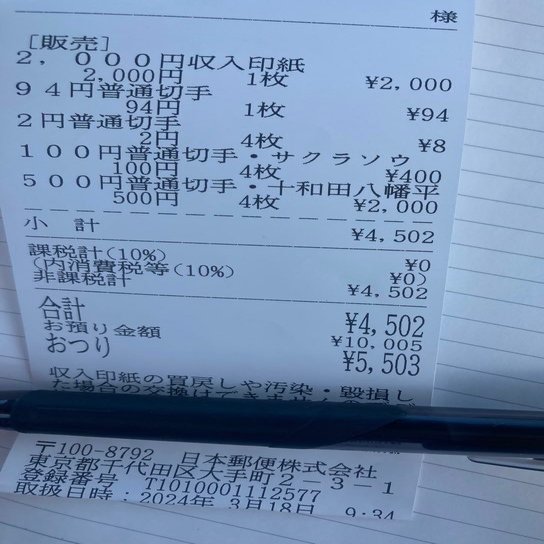 様
[販売]
2,000円収入印紙
2,000円 1枚 ¥2,000
94円普通切手
94円 1枚 ¥94
2円普通切手
2円 4枚 ¥8
100円普通切手・サクラソウ
100円 4枚 ¥400
500円普通切手・十和田八幡平
500円 4枚 ¥2,000
小計 ¥4,502
課税計(10%) ¥0
(内消費税等(10%) ¥0)
非課税計 ¥4,502
合計 ¥4,502
お預り金額 ¥10,005
おつり ¥5,503
収入印紙の買戻しや汚染・毀損し
た場合の交換はできません
〒100-8792 日本郵便株式会社
東京都千代田区大手町2-3-1
登録番号 T1010001112577
取扱日時:2024年 3月18日 9:34